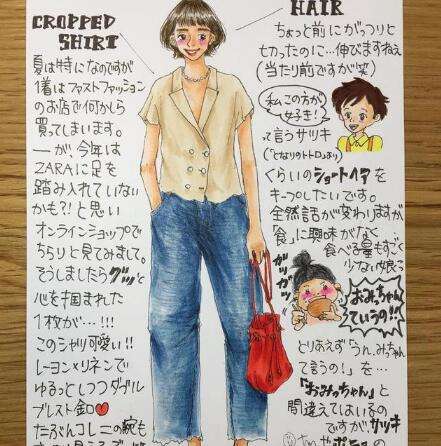 CROPPED
SHIRT
夏は特になのですが
1着はファストファッション
のお店で何かしら
買ってしまいます。
―が、今年は
ZARAに足を
踏み入れていない
かも?!と思い
オンラインショップで
ちらりと見てみまして。
そうしましたらグッと
心を掴まれた
1枚が…!!!
このシャツ可愛い!!
レーヨン×リネンで
ゆるっとしつつダブル
ブレスト金ロ♥
たぶんコレこの腕も
HAIR
ちょっと前にがっつりと
切ったのに…伸びますねぇ
(当たり前ですが笑)
私この方が
好き!
って言うサツキ
(「となりのトトロ」より)
くらいのショートヘアを
キープしたいです。
全然話が変わりますが
「食」に興味がなく
食べる量もすごく
少ない娘に
ガツガツ
おみっちゃん
ていうの!!
とりあえず「うん、みっちゃん
て言うの!」を
「おみっちゃん」と
間違えてはいるの
ですがサツキ